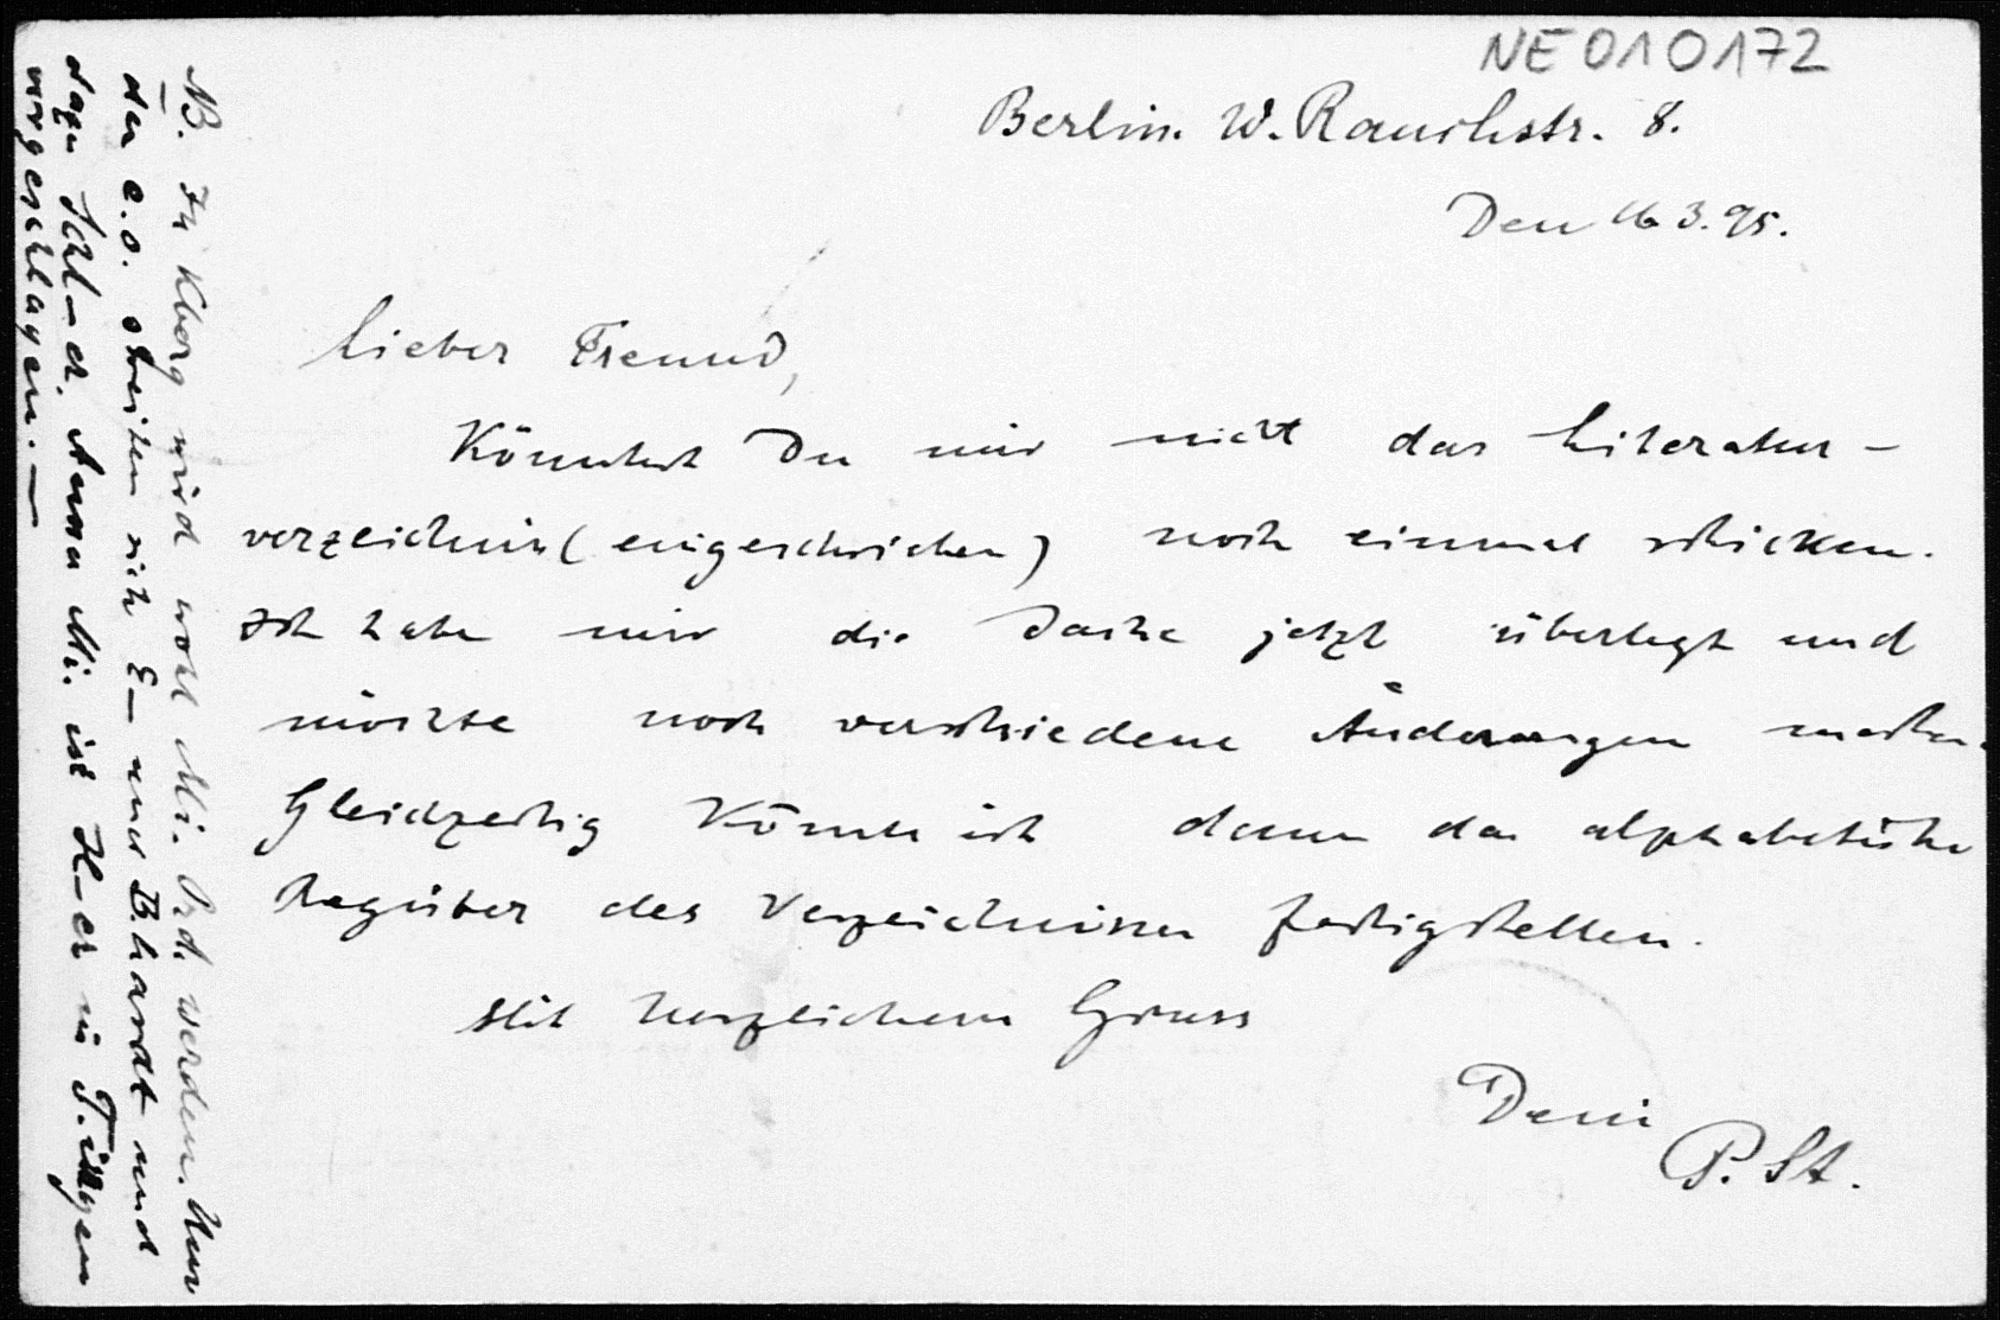 NE010172
Berlin. W. Rauchstr. 8.
Den 16 3. 95.
Lieber Freund,
Könntest Du mir nicht das Literatur-
verzeichnis (eingeschrieben) noch einmal schicken.
Ich habe mir die Sache jetzt überlegt und
möchte noch verschiedene Änderungen machen.
Gleichzeitig könnte ich dann das alphabetische
Register des Verzeichnisses fertigstellen.
Mit herzlichem Gruss
Dein
P. St.
NB. In Kberg wird wohl Mi. Ord. werden. Um
da e.o. streiten sich E— und B.hardt und
dazu Schl—er. Ausser Mi. ist H—er in T.ingen
vorgeschlagen.—